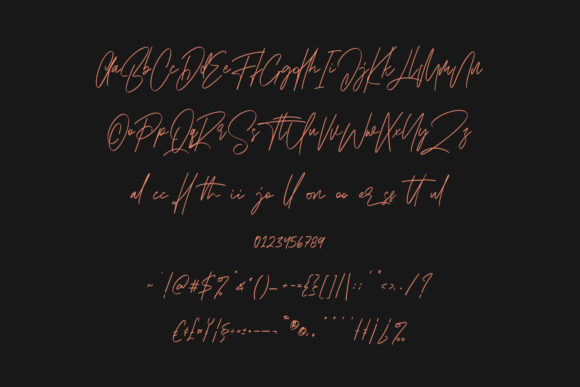 AaBbCcDdEeFfGgHhIiJjKkLlMmNn
OoPpQqRrSsTtUuVvWwXxYyZz
al cc ff th ii jo ll on oo er ss tt ul
0123456789
~`!@#$%^&*()_+-={}[]/|\:;"'<>,./?